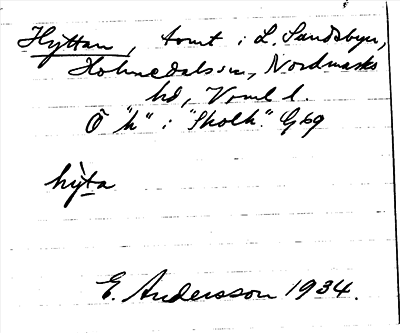 Hyttan, tomt i L. Sandsbyn,
Holmedals sn, Nordmarks
hd, Vrml l.
Ö "h" i "Skolh." G 69
hy̆ta
E. Andersson 1934.